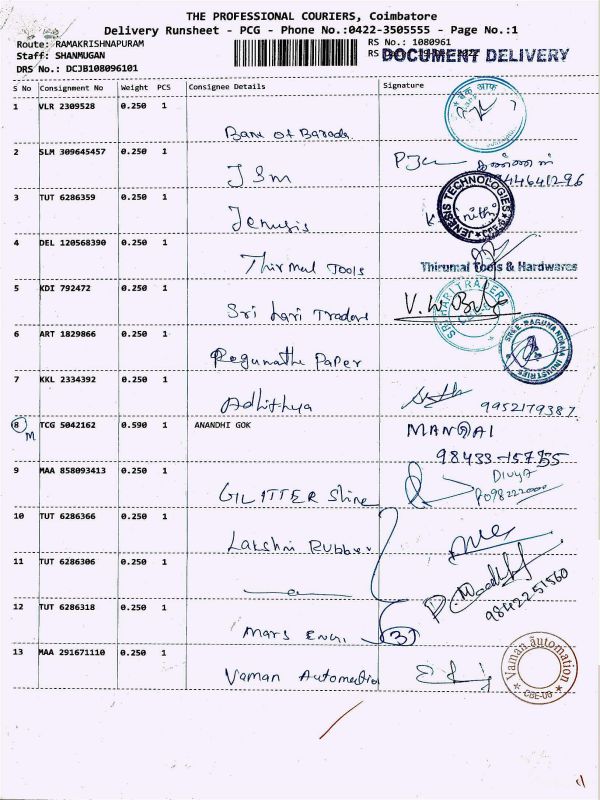 THE PROFESSIONAL COURIERS, Coimbatore
Delivery Runsheet - PCG - Phone No.:0422-3505555 - Page No.:1
Route: RAMAKRISHNAPURAM
RS No.: 1080961
Staff: SHANMUGAN
RS
DOCUMENT DELIVERY
DRS No.: DCJB108096101
S No Consignment No Weight PCS Consignee Details Signature
1 VLR 2309528 0.250 1
Bank of Baroda
2 SLM 309645457 0.250 1
JSM
3 TUT 6286359 0.250 1
JENESIS TECHNOLOGIES
Jenusis
4 DEL 120568390 0.250 1
Thirmal Tools Thirumal Tools & Hardwares
5 KDI 792472 0.250 1
Sri hari Traders
6 ART 1829866 0.250 1
SREE RAGUNANDANA INDUSTRIES
Regunatha Paper
7 KKL 2334392 0.250 1
Adhithya 9952179387
8 TCG 5042162 0.590 1 ANANDHI GOK
M
98433-15735
9 MAA 858093413 0.250 1
Divya
GLITTER Shine
10 TUT 6286366 0.250 1
Lakshmi Rubber
11 TUT 6286306 0.250 1
9842251560
12 TUT 6286318 0.250 1
Mars Engi 3
13 MAA 291671110 0.250 1
Vaman Automation
Vaman automation
CBE-06